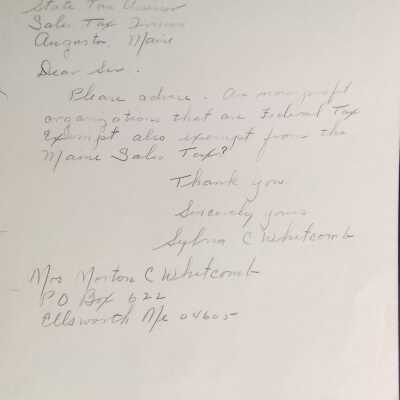 State Tax Assessor
Sales Tax Division
Augusta, Maine
Dear Sir.
Please advise. Are nonprofit
organizations that are Federal Tax
Exempt also exempt from the
Maine Sales Tax?
Thank you
Sincerely yours
Sylvia C Whitcomb
Mrs Morton C Whitcomb
PO Box 622
Ellsworth Me 04605